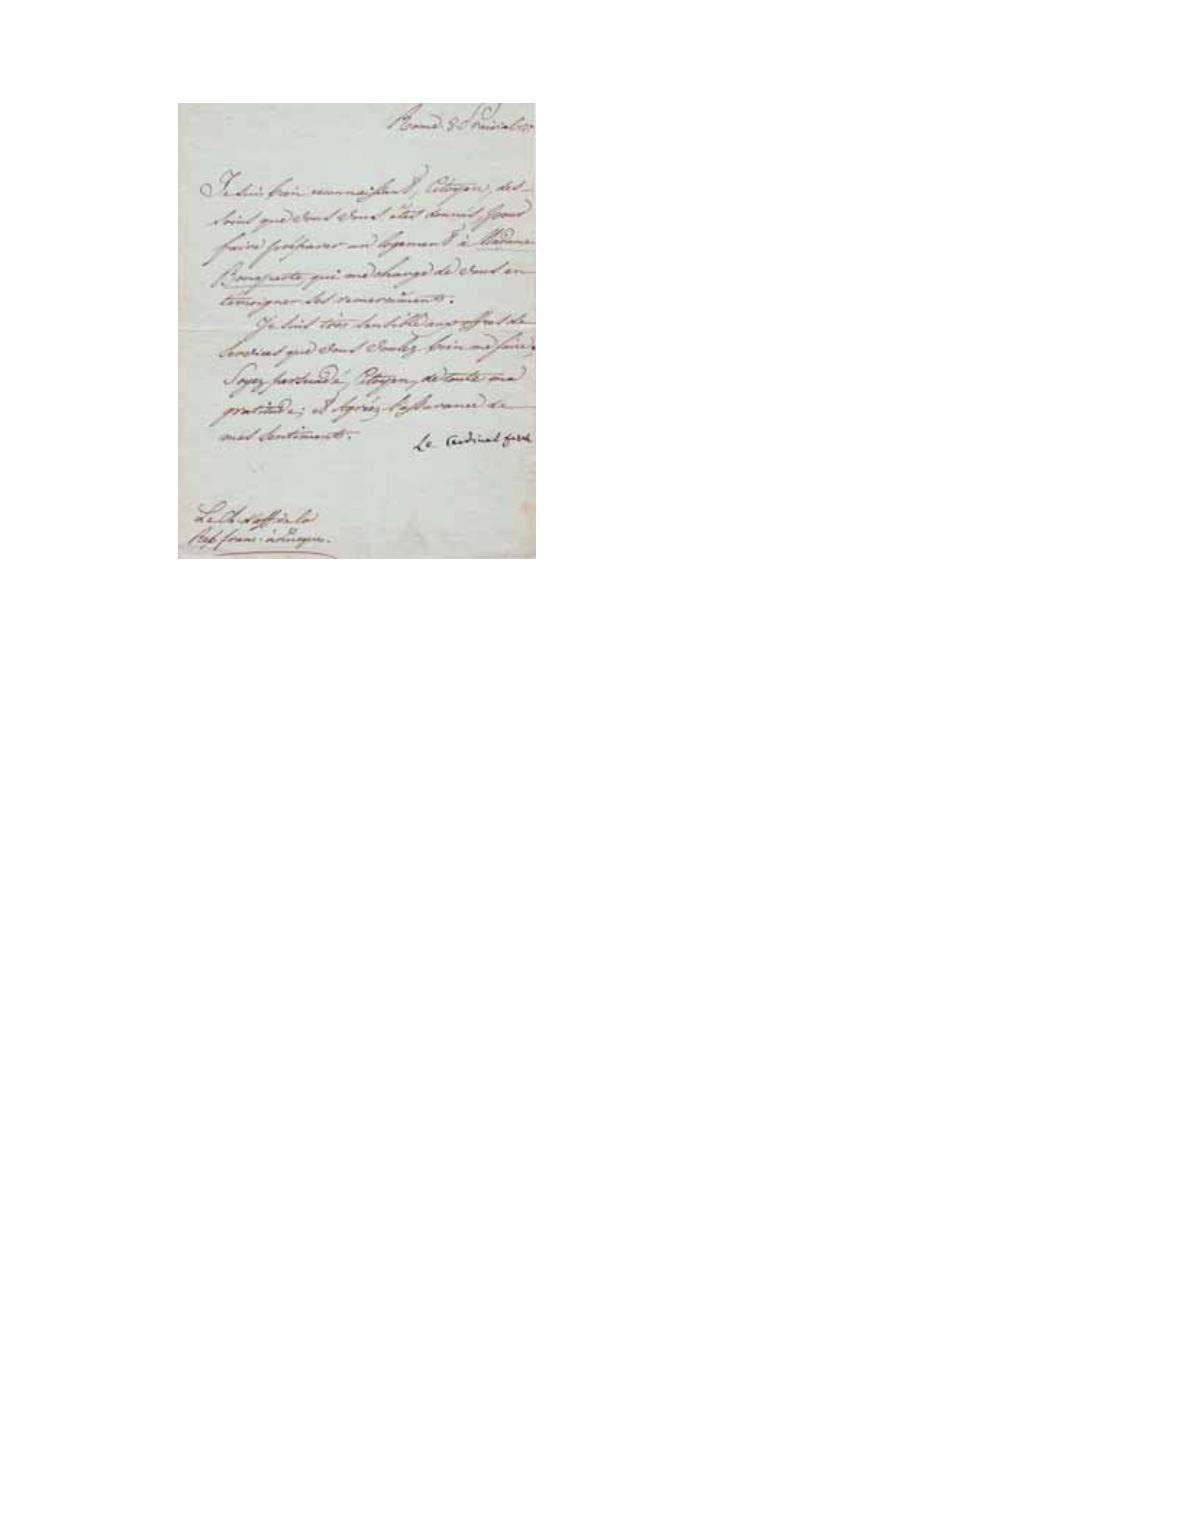 Rome 8 Prairial
Je suis bien reconnaissant, Citoyen, des
soins que vous vous êtes donnés pour
faire préparer un logement à Madame
Bonaparte, qui me charge de vous en
témoigner ses remerciments.
Je suis très sensible aux offres de
services que vous voulez bien me faire;
Soyez persuadé, Citoyen, de toute ma
gratitude; et Agréez l'assurance de
mes sentiments.
Le Cardinal fesch
Le Ch. d'aff. de la
Rep. franc.